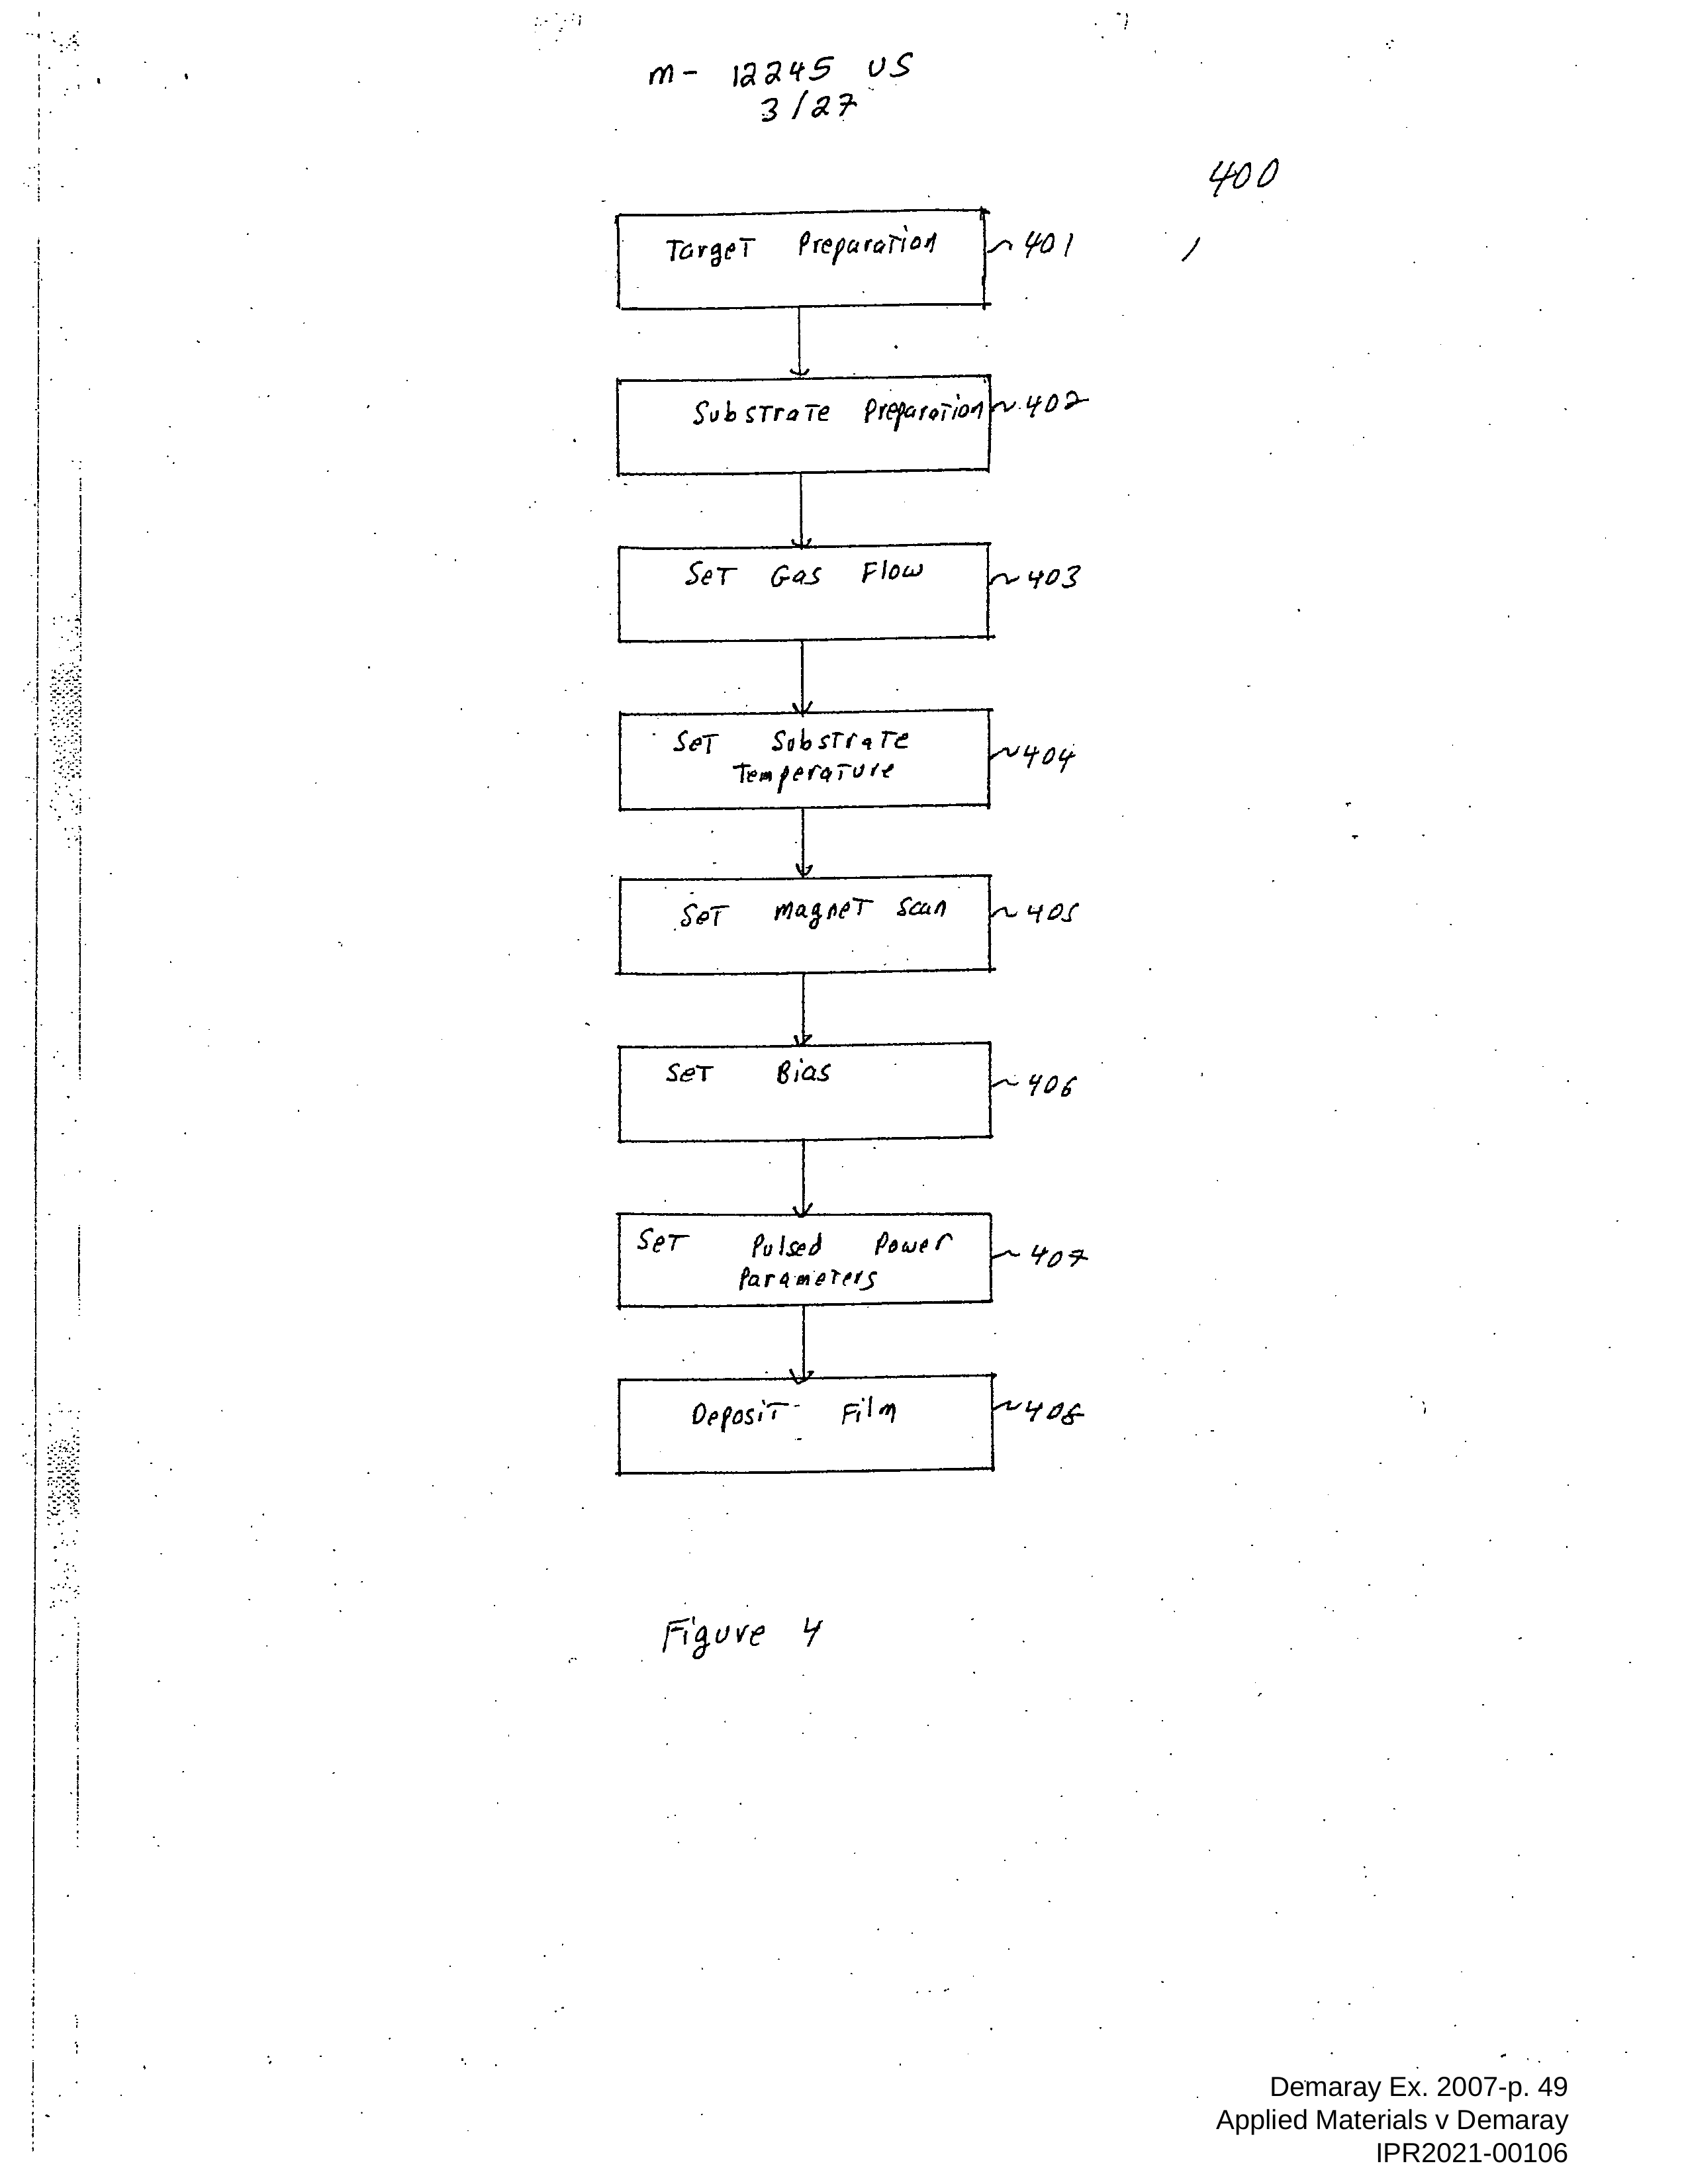 M- 12245 US
3/27
400
Target Preparation
401
Substrate Preparation
402
Set Gas Flow
403
Set Substrate
Temperature
404
Set Magnet Scan
405
Set Bias
406
Set Pulsed Power
Parameters
407
Deposit Film
408
Figure 4
Demaray Ex. 2007-p. 49
Applied Materials v Demaray
IPR2021-00106